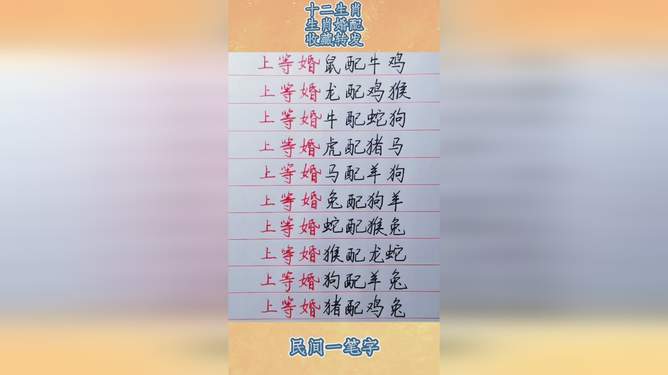 十二生肖
生肖婚配
收藏转发
上等婚鼠配牛鸡
上等婚龙配鸡猴
上等婚牛配蛇狗
上等婚虎配猪马
上等婚马配羊狗
上等婚兔配狗羊
上等婚蛇配猴兔
上等婚猴配龙蛇
上等婚狗配羊兔
上等婚猪配鸡兔
民间一笔字